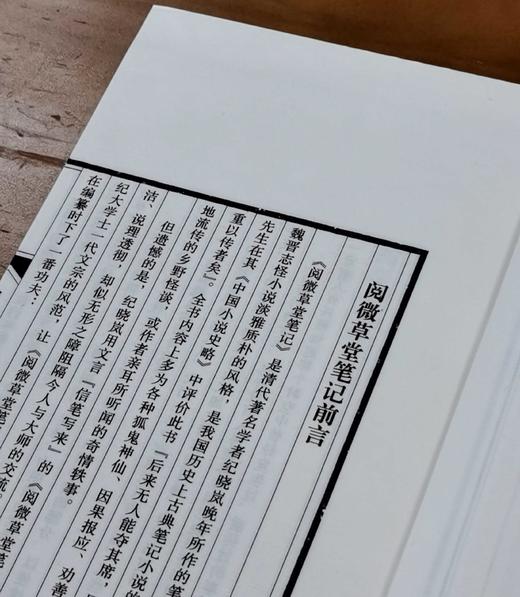 阅微草堂笔记前言
《阅微草堂笔记》是清代著名学者纪晓岚晚年所作的笔
魏晋志怪小说淡雅质朴的风格，是我国历史上古典笔记小说的
先生在其《中国小说史略》中评价此书『后来无人能夺其席，
重以传者矣』。全书内容上多为各种狐鬼神仙、因果报应、劝善
地流传的乡野怪谈，或作者亲耳所听闻的奇情轶事。
但遗憾的是，纪晓岚用文言『信笔写来』的《阅微草堂笔
洁、说理透彻，却似无形之障阻隔今人与大师的交流。
纪大学士一代文宗的风范，让《阅微草堂笔
在编纂时下了一番功夫：